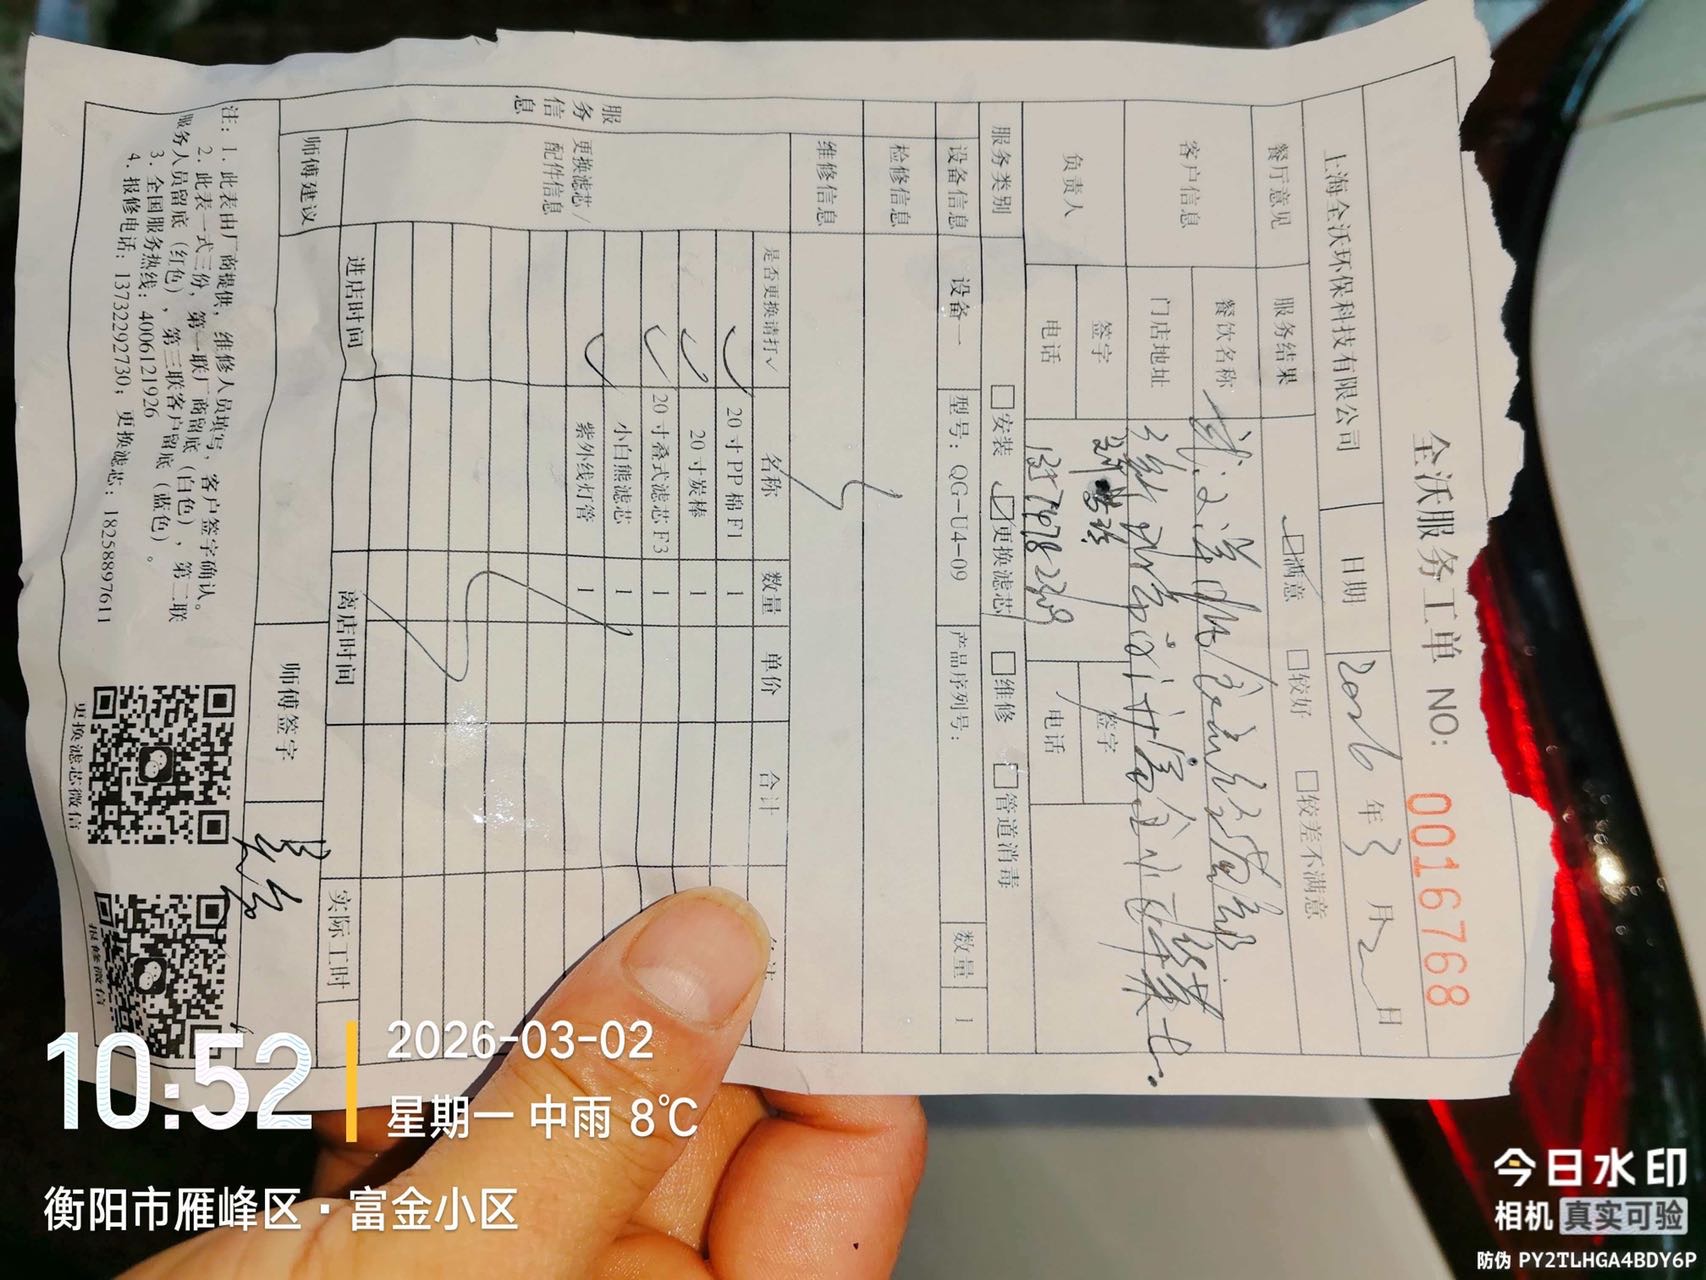 全沃服务工单 NO: 0016768
上海全沃环保科技有限公司 日期 2026 年 3 月 2 日
餐厅意见 服务结果 满意 较好 较差不满意
客户信息 餐饮名称
门店地址
负责人 签字 签字
电话 电话
服务类别 安装 更换滤芯 维修 管道消毒
设备信息 设备一 型号: QG-U4-09 产品序列号: 数量 1
检修信息
维修信息
服务信息
更换滤芯/配件信息
是否更换请打√ 名称 数量 单价 合计
✓ 20寸PP棉F1 1
✓ 20寸炭棒 1
✓ 20寸叠式滤芯F3 1
小白熊滤芯 1
✓ 紫外线灯管 1
进店时间 离店时间 实际工时
师傅建议 师傅签字
注: 1. 此表由厂商提供, 维修人员填写, 客户签字确认。
2. 此表一式三份, 第一联厂商留底(白色), 第二联
服务人员留底(红色), 第三联客户留底(蓝色)。
3. 全国服务热线: 4006121926
4. 报修电话: 13732292730; 更换滤芯: 18258897611
更换滤芯微信
报修微信
10:52
2026-03-02
星期一 中雨 8℃
衡阳市雁峰区·富金小区
今日水印
相机 真实可验
防伪 PY2TLHGA4BDY6P